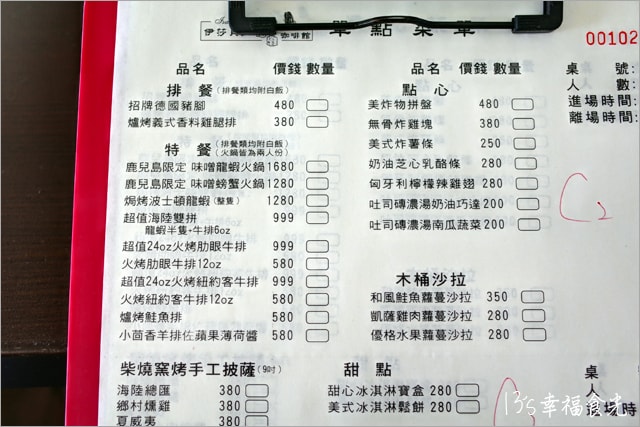 伊莎 咖啡館 單點菜單
00102
品名 價錢 數量
排餐(排餐類均附白飯)
招牌德國豬腳 480
爐烤義式香料雞腿排 380
特餐(排餐類均附白飯)
(火鍋皆為兩人份)
鹿兒島限定 味噌龍蝦火鍋 1680
鹿兒島限定 味噌螃蟹火鍋 1280
焗烤波士頓龍蝦(整隻) 1280
超值海陸雙拼 999
龍蝦半隻+牛排6oz
超值24oz火烤肋眼牛排 999
火烤肋眼牛排12oz 580
超值24oz火烤紐約客牛排 999
火烤紐約客牛排12oz 580
爐烤鮭魚排 580
小茴香羊排佐蘋果薄荷醬 580
柴燒窯烤手工披薩(9吋)
海陸總匯 380
鄉村燻雞 380
夏威夷 380
品名 價錢 數量
點心
美炸物拼盤 480
無骨炸雞塊 380
美式炸薯條 250
奶油芝心乳酪條 280
匈牙利檸檬辣雞翅 280
吐司磚濃湯奶油巧達 200
吐司磚濃湯南瓜蔬菜 200
木桶沙拉
和風鮭魚蘿蔓沙拉 350
凱薩雞肉蘿蔓沙拉 280
優格水果蘿蔓沙拉 280
甜點
甜心冰淇淋寶盒 280
美式冰淇淋鬆餅 280
桌號:
人數:
進場時間
離場時間:
C2
桌
人
場時
135幸福食光